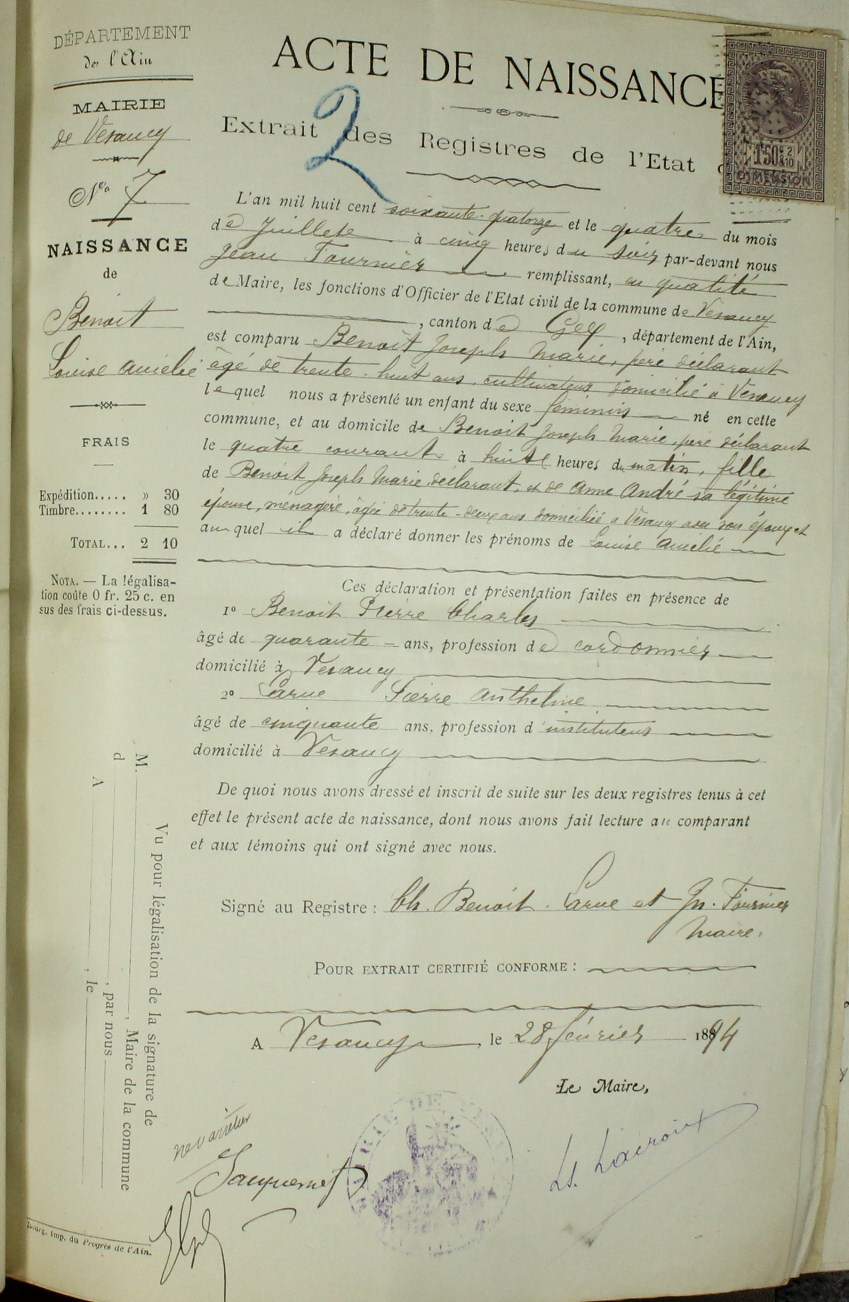 DÉPARTEMENT
de l'Ain
MAIRIE
de Vesancy
Nos 7
NAISSANCE
de
Benoit
Louise Amélie
FRAIS
Expédition..... » 30
Timbre........ 1 80
TOTAL... 2 10
NOTA. — La légalisa-
tion coûte 0 fr. 25 c. en
sus des frais ci-dessus.
ACTE DE NAISSANCE
2
Extrait des Registres de l'Etat
1F50
DIMENSION
L'an mil huit cent soixante-quatorze et le quatre du mois
de Juillet à cinq heures du soir par-devant nous
Jean Fournier remplissant, en qualité
de Maire, les fonctions d'Officier de l'Etat civil de la commune de Vesancy
, canton de Gex, département de l'Ain,
est comparu Benoit Joseph Marie, père déclarant
âgé de trente-huit ans, cultivateur domicilié à Vesancy
lequel nous a présenté un enfant du sexe féminin né en cette
commune, et au domicile de Benoit Joseph Marie, père déclarant
le quatre courant à huit heures du matin, fille
de Benoit Joseph Marie, déclarant, et de Anne André sa légitime
épouse, ménagère, âgée de trente-deux ans domiciliée à Vesancy avec son époux et
auquel il a déclaré donner les prénoms de Louise Amélie
Ces déclaration et présentation faites en présence de
1º Benoit Pierre Charles
âgé de quarante ans, profession de cordonnier
domicilié à Vesancy
2º Larue Pierre Anthelme
âgé de cinquante ans, profession d'instituteur
domicilié à Vesancy
De quoi nous avons dressé et inscrit de suite sur les deux registres tenus à cet
effet le présent acte de naissance, dont nous avons fait lecture au comparant
et aux témoins qui ont signé avec nous.
Signé au Registre : Ch. Benoit. Larue et Jn. Fournier
Maire.
POUR EXTRAIT CERTIFIÉ CONFORME :
A Vesancy, le 28 février 1894
Le Maire,
Ls. Lacroix
ne varietur
Vu pour légalisation de la signature de
M. , Maire de la commune
d , par nous
A , le
Bourg, Imp. du Progrès de l'Ain.